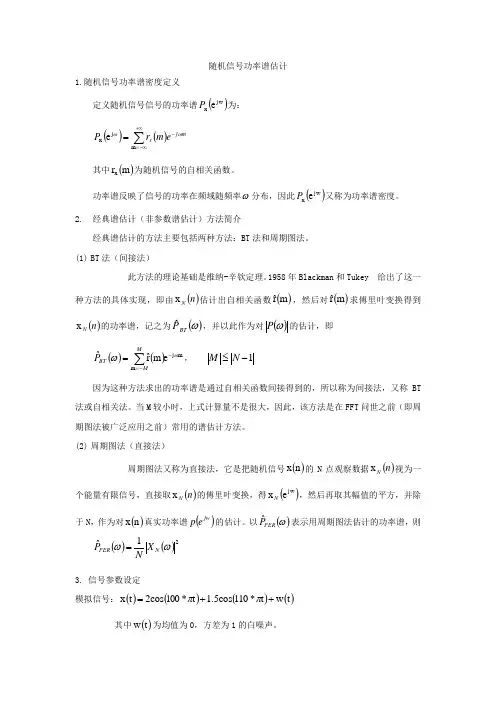 随机信号功率谱估计
1.随机信号功率谱密度定义
定义随机信号信号的功率谱 P_x(e^{jw}) 为:
P_x(e^{jω}) = ∑_{m=-∞}^{+∞} r_x(m)e^{-jωm}
其中 r_x(m) 为随机信号的自相关函数。
功率谱反映了信号的功率在频域随频率 ω 分布，因此 P_x(e^{jw}) 又称为功率谱密度。
2. 经典谱估计（非参数谱估计）方法简介
经典谱估计的方法主要包括两种方法：BT 法和周期图法。
(1) BT 法（间接法）
此方法的理论基础是维纳-辛钦定理。1958 年 Blackman 和 Tukey 给出了这一
种方法的具体实现，即由 x_N(n) 估计出自相关函数 r̂(m)，然后对 r̂(m) 求傅里叶变换得到
x_N(n) 的功率谱，记之为 P̂_{BT}(ω)，并以此作为对 P(ω) 的估计，即
P̂_{BT}(ω) = ∑_{m=-M}^{M} r̂(m)e^{-jωm}， M ≤ N-1
因为这种方法求出的功率谱是通过自相关函数间接得到的，所以称为间接法，又称 BT
法或自相关法。当 M 较小时，上式计算量不是很大，因此，该方法是在 FFT 问世之前（即周
期图法被广泛应用之前）常用的谱估计方法。
(2) 周期图法（直接法）
周期图法又称为直接法，它是把随机信号 x(n) 的 N 点观察数据 x_N(n) 视为一
个能量有限信号，直接取 x_N(n) 的傅里叶变换，得 x_N(e^{jw})，然后再取其幅值的平方，并除
于 N，作为对 x(n) 真实功率谱 p(e^{jw}) 的估计。以 P̂_{PER}(ω) 表示用周期图法估计的功率谱，则
P̂_{PER}(ω) = \frac{1}{N}|X_N(ω)|^2
3. 信号参数设定
模拟信号：x(t) = 2cos(100*πt) + 1.5cos(110*πt) + w(t)
其中 w(t) 为均值为 0，方差为 1 的白噪声。